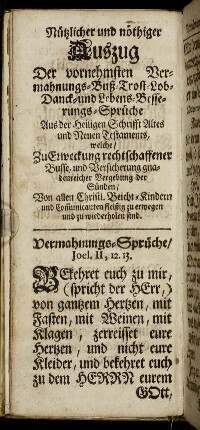 Nützlicher und nöthiger
Auszug
Der vornehmsten Ver-
mahnungs-Buß-Trost-Lob-
Danck-und Lebens-Besse-
rungs-Sprüche
Aus der Heiligen Schrifft Altes
und Neuen Testaments,
welche/
Zu Erweckung rechtschaffener
Busse, und Versicherung gna-
denreicher Vergebung der
Sünden/
Von allen Christl. Beicht-Kindern
und Communicanten fleißig zu erwegen
und zu wiederholen sind.
Vermahnungs-Sprüche/
Joel. II, 12. 13.
BEkehret euch zu mir,
(spricht der HErr,)
von gantzem Hertzen, mit
Fasten, mit Weinen, mit
Klagen, zerreisset eure
Hertzen, und nicht eure
Kleider, und bekehret euch
zu dem HERRN eurem
GOtt,